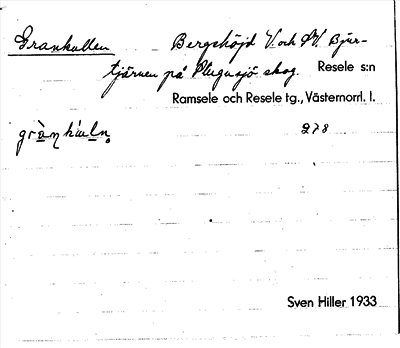 Grankullen Bergshöjd V. och NV. Bjur-
tjärnen på skog. Resele s:n
Ramsele och Resele tg., Västernorrl. l.
278
Sven Hiller 1933